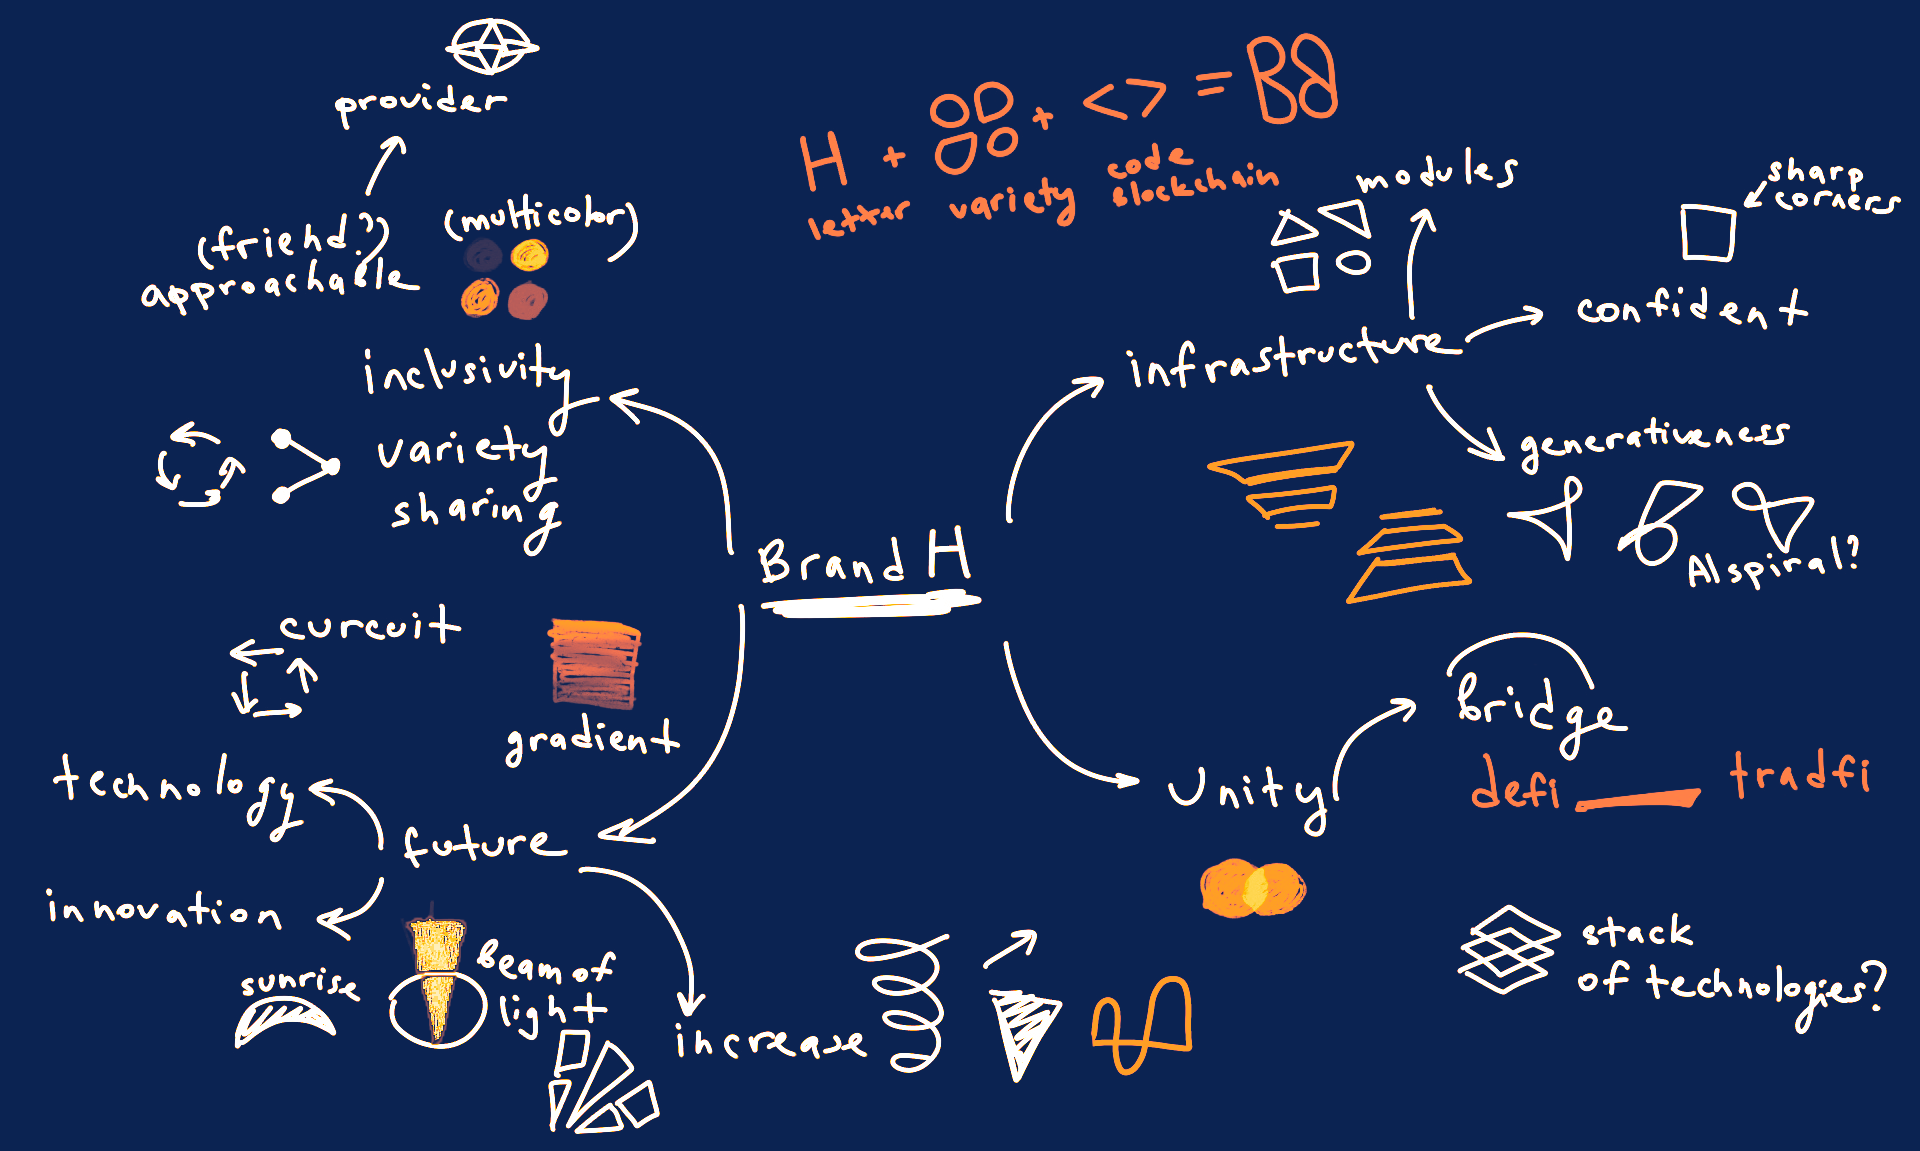 provider
(friend?)
approachable
(multicolor)
inclusivity
variety
sharing
H + + <> =
letter variety code
blockchain
modules
sharp
corners
infrastructure
confident
generativeness
AIspiral?
Brand H
curcuit
gradient
technology
future
innovation
sunrise
Beam of
light
increase
Unity
Bridge
defi tradfi
stack
of technologies?